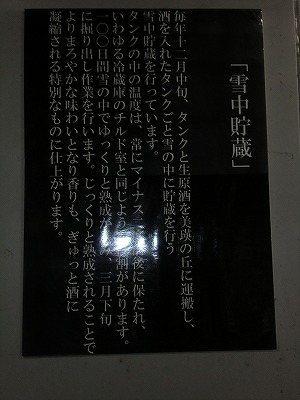 「雪中貯蔵」
毎年十二月中旬、タンクと生原酒を美瑛の丘に運搬し、
酒を入れたタンクごと雪の中に貯蔵を行う
雪中貯蔵を行っています。
タンクの中の温度は、常にマイナス 後に保たれ、
いわゆる冷蔵庫のチルド室と同じよう 割があります。
一〇〇日間雪の中でゆっくりと熟成が み、三月下旬
に掘り出し作業を行います。じっくりと熟成されることで
よりまろやかな味わいとなり香りも、ぎゅっと酒に
凝縮される特別なものに仕上がります。